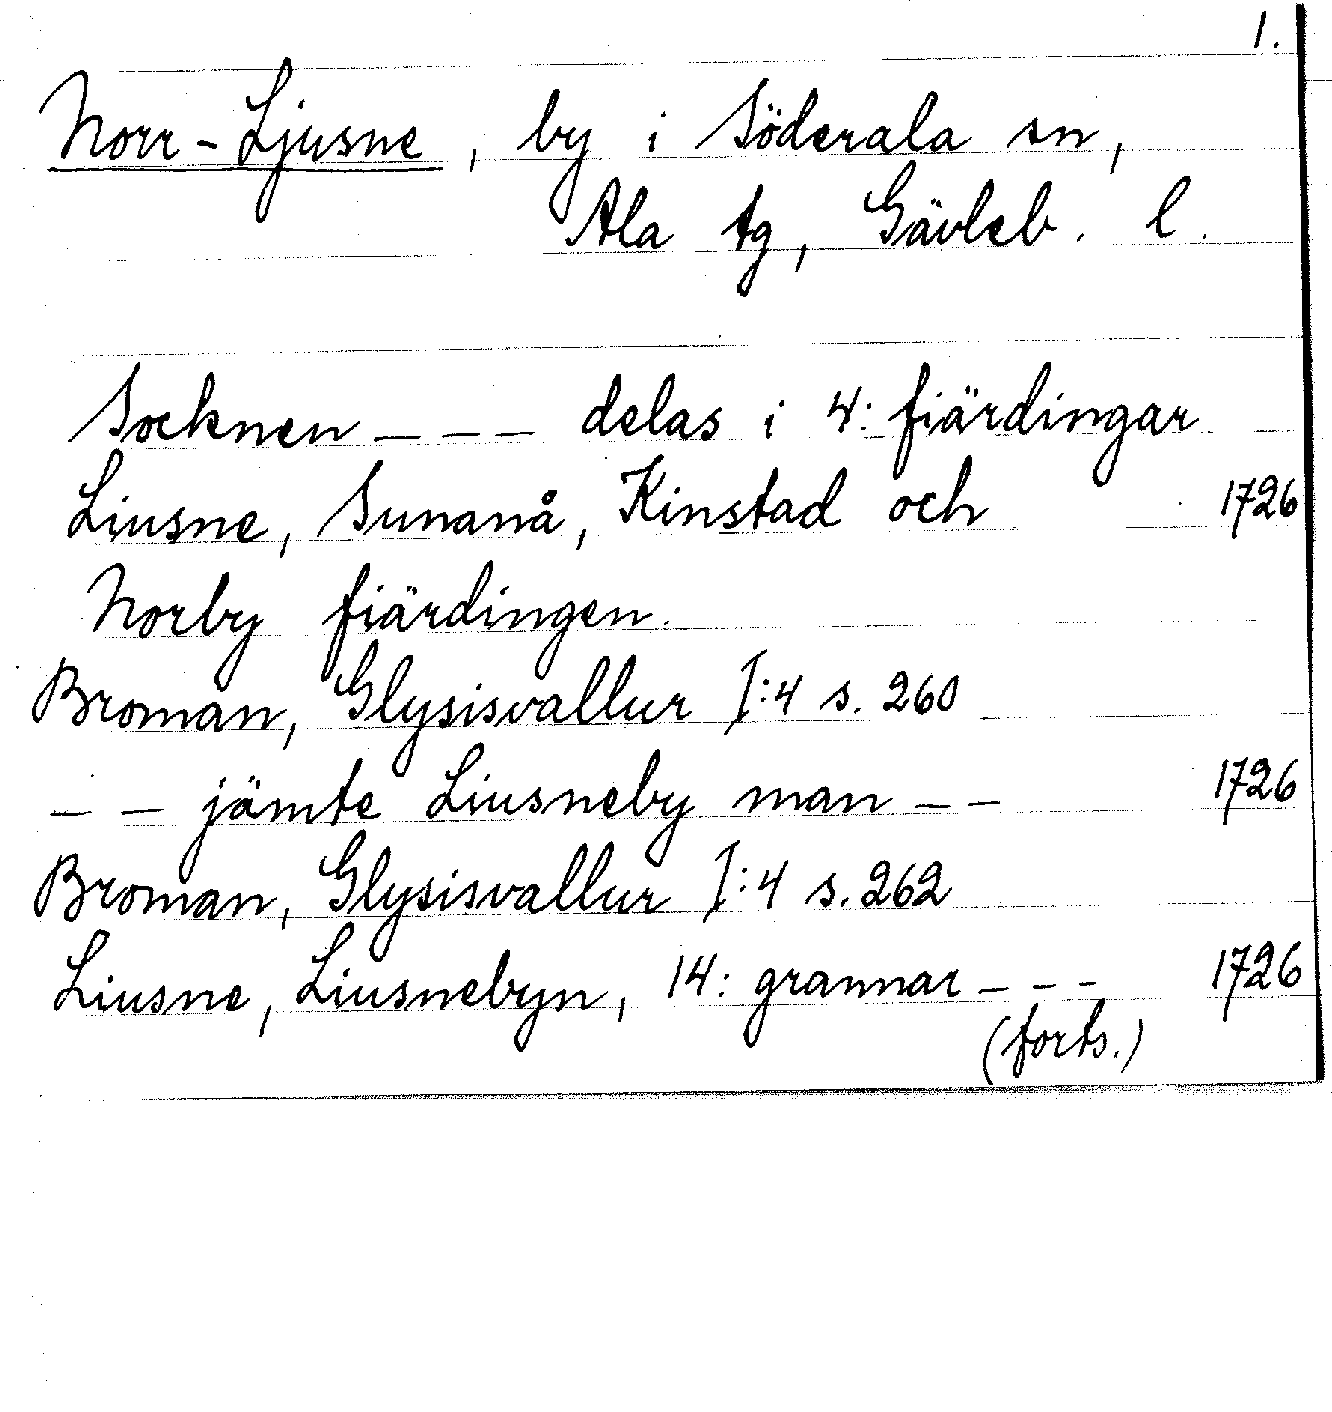 1.
Norr-Ljusne, by i Söderala sn,
Ala tg, Gävleb. l.
Socknen - - - delas i 4: fiärdingar
Liusne, Sunanå, Kinstad och 1726
Norby fiärdingen.
Broman, Glysisvallur I:4 s. 260
- - jämte Liusneby man - - 1726
Broman, Glysisvallur I:4 s. 262
Liusne, Liusnebyn, 14: grannar - - - 1726
(forts.)